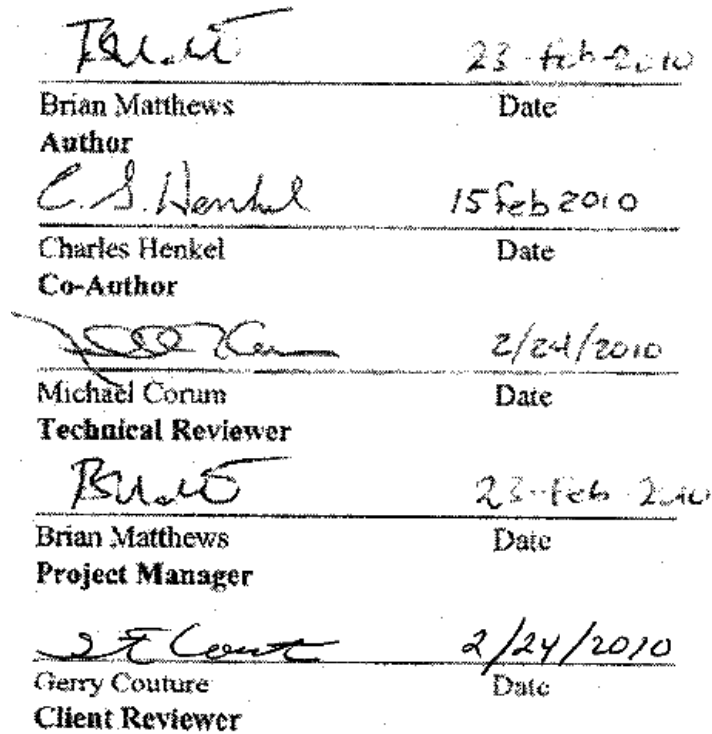 23-Feb-2010
Brian Matthews Date
Author
C. S. Henkel 15 Feb 2010
Charles Henkel Date
Co-Author
2/24/2010
Michael Corum Date
Technical Reviewer
23-Feb-2010
Brian Matthews Date
Project Manager
2/24/2010
Gerry Couture Date
Client Reviewer